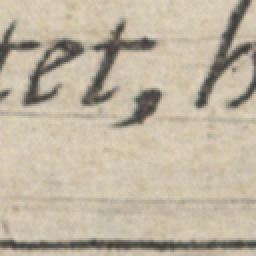 tet, h